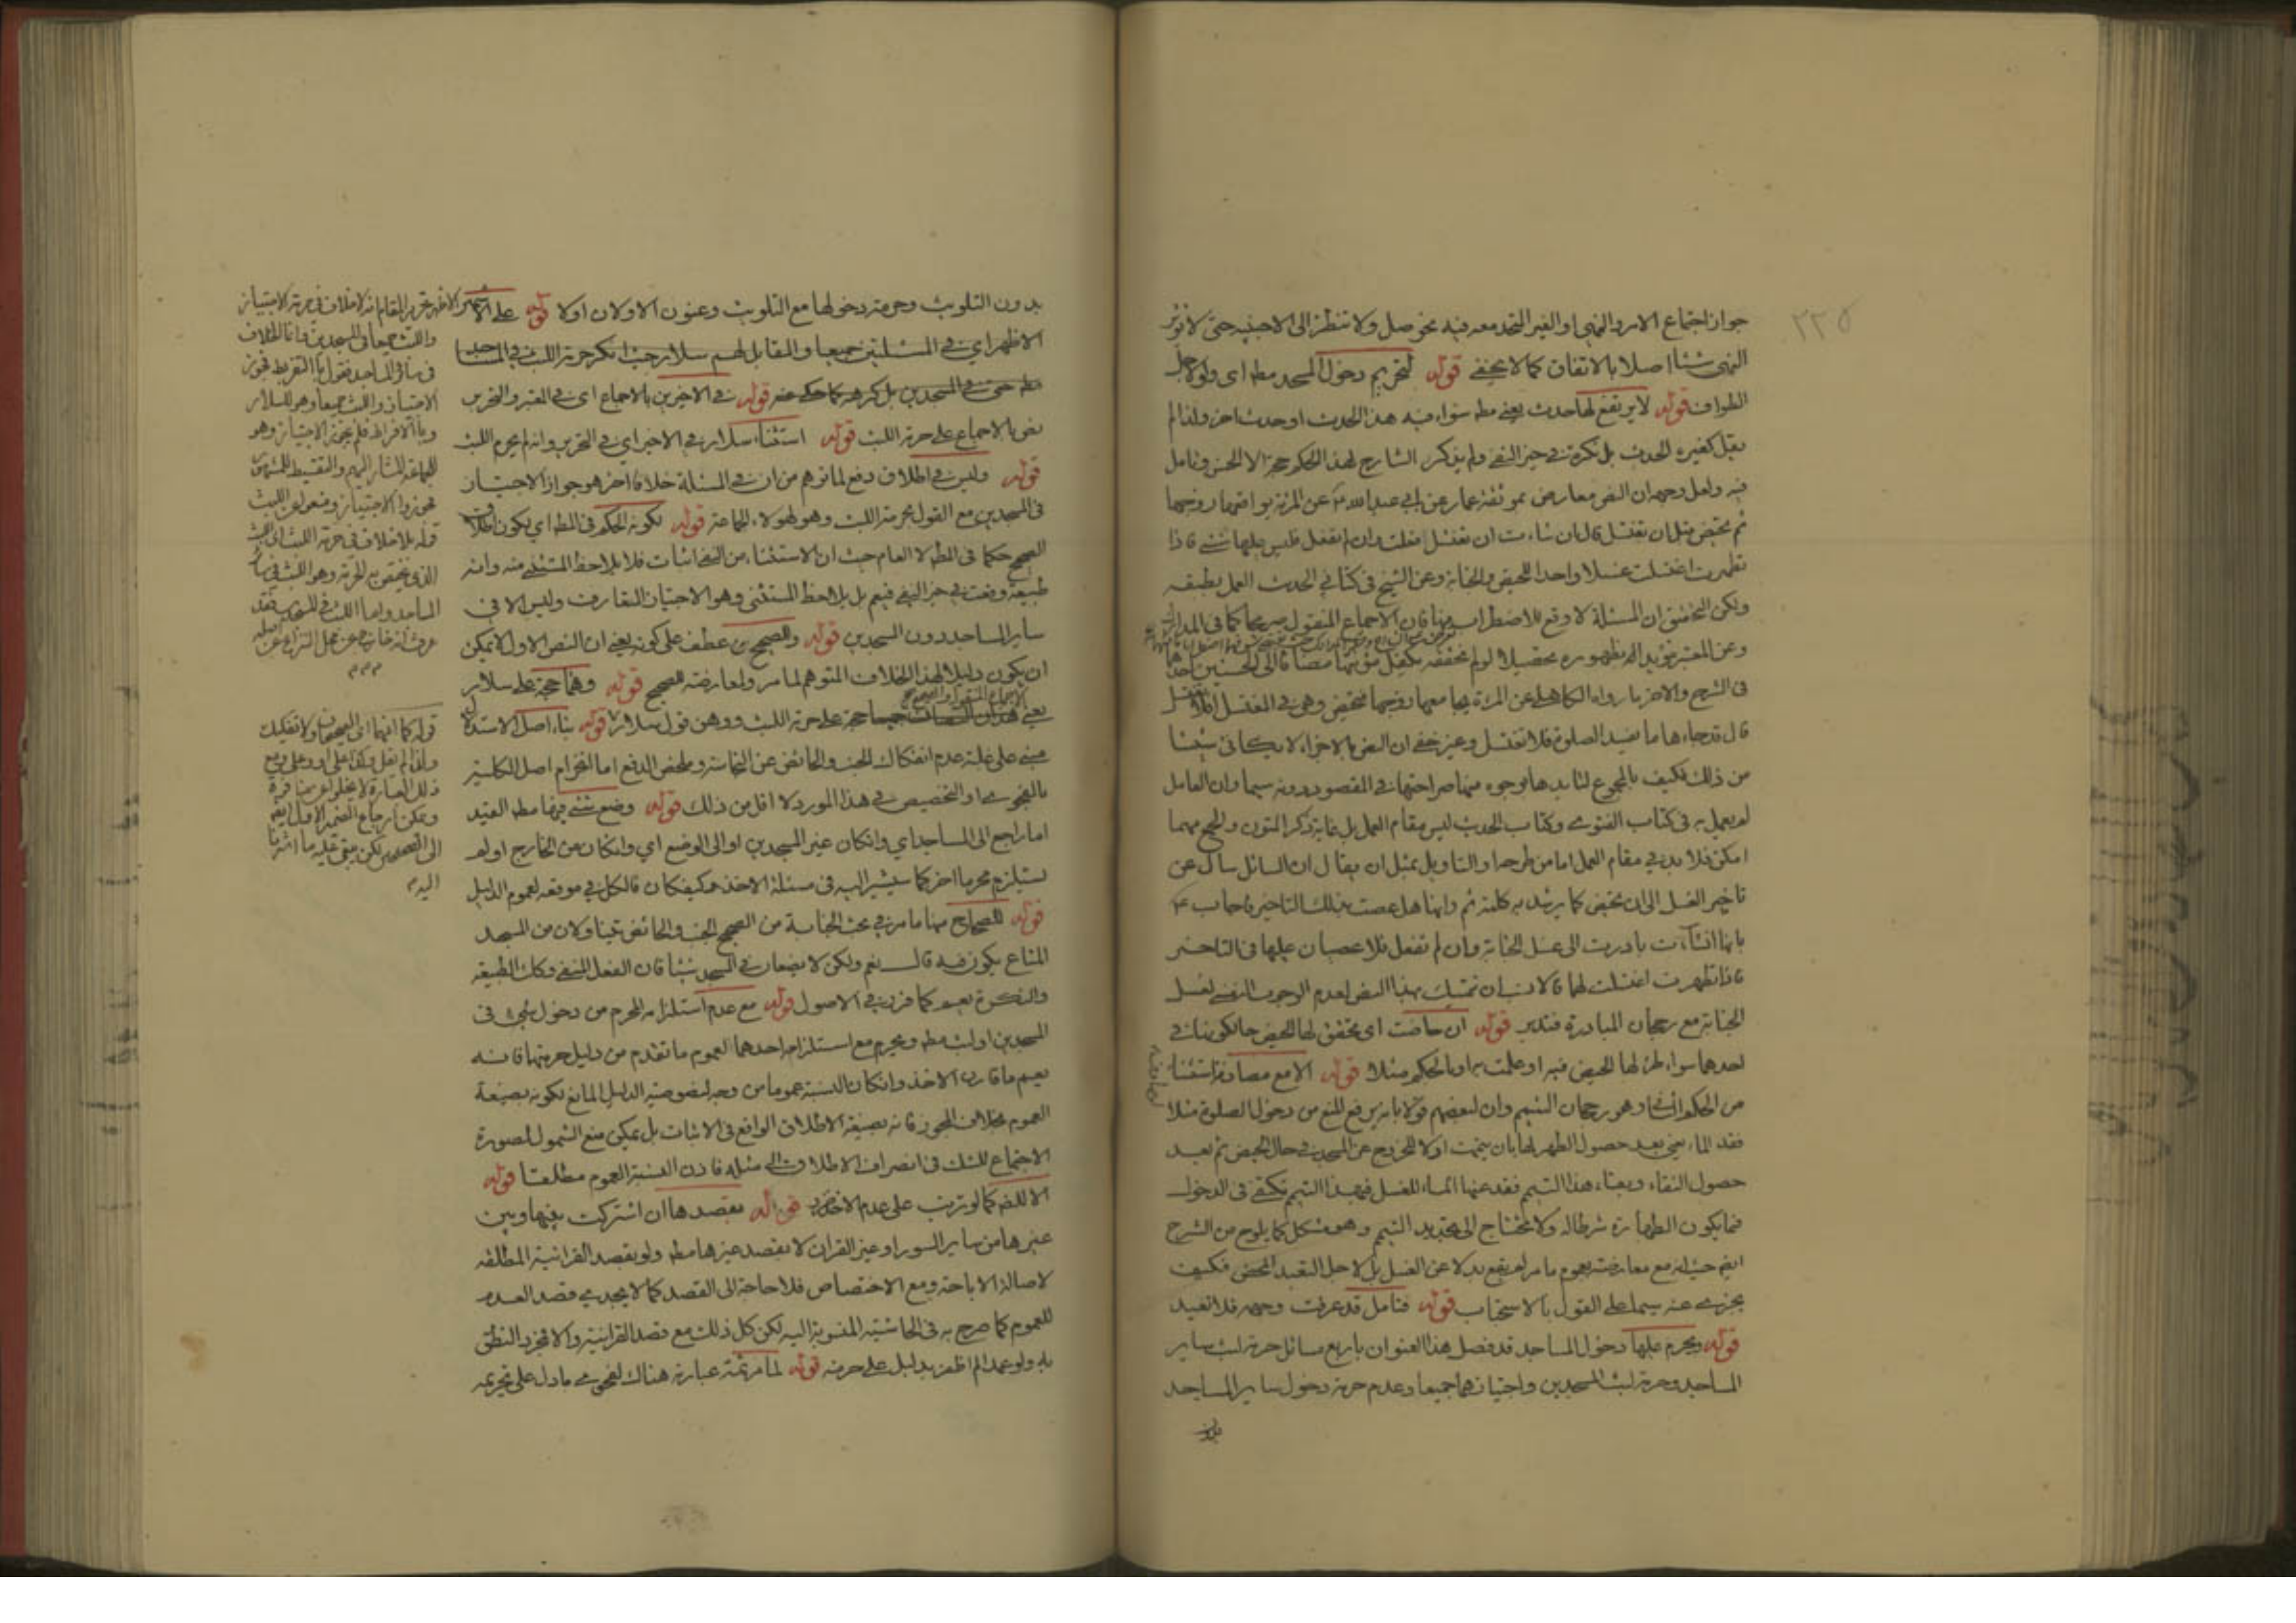 ٢٢٥
جواز اجتماع الامر والنهى او الغير المتحد معه فيه نحو صل ولا تنظر الى الاجنبيه حتى لا توثر
النهى شيئا اصلا بالاتفاق كما لا يخفى قوله لتحريم دخول المسجد مطه اى ولو لاجل
الطواف قوله لا يرتفع لها حدث يعنى مطه سواء فيه هذا الحدث او حدث اخر ولذا لم
يقل كغيره الحدث بل نكرة فى حيز النفى ولم يذكر الشارح لهذا الحكم حجة الا الحسن وتامل
فيه ولعل وجهه ان النص معارض بموثقة عمار عن ابى عبد الله ع عن المرئة يواقعها زوجها
ثم تحيض قبل ان تغتسل قال ان شاءت ان تغتسل فعلت وان لم تفعل فليس عليها شئ فاذا
تطهرت اغتسلت غسلا واحدا للحيض والجنابة وعن الشيخ فى كتابى الحدث العمل بطبقه
ولكن التحقيق ان المسئلة لا وقع للاضطراب فيها فان الاجماع المنقول صريحا كما فى المدارك
وعن المعتبر مويدا له بظهوره تحصيلا لو لم نحققه يكفيل مؤنتها مضافا الى الحسنين احدهما
فى الشرح والاخر ما رواه الكاهلى عن المرئة يجامعها زوجها فتحيض وهى فى المغتسل افلا تغتسل
قال قد جاءها ما يفسد الصلوة فلا تغتسل وغير خفى ان النص بالاجزاء لا يكافئ شيئا
من ذلك فكيف بالمجموع لتايدها بوجوه منها صراحتها فى المقصود دونه سيما وان العامل
لم يعمل به فى كتاب الفتوى وكتاب الحديث ليس مقام العمل بل غاية ذكر المتون والجمع مهما
امكن فلا بد فى مقام العمل اما من طرحها او التاويل بمثل ان يقال ان السائل سال عن
تاخير الغسل الى ان تحيض كما يرشد به كلمة ثم وانها هل عصت بذلك التاخير فاجاب ع
بانها ان شاءت بادرت الى غسل الجنابة وان لم تفعل فلا عصيان عليها فى التاخير
فاذا تطهرت اغتسلت لهما فالانسب ان نتمسك بهذا النص لعدم الوجوب النفسى لغسل
الجنابة مع رجحان المبادرة فتدبر قوله ان حاضت اى تحقق لها الحيض حالكونها فى
احدهما سواء طرء لها الحيض فيه او علمت به او بالحكم مثلا قوله الا مع مصادفة استثناء
من الحكم المستفاد وهو رجحان التيمم وان لبعضهم قولا بانه يرفع المنع من دخول الصلوة مثلا
فقد الماء يعنى بعد حصول الطهر لها بان تيممت اولا للخروج عن المسجد فى حال الحيض ثم بعد
حصول النقاء وبقاء هذا التيمم فقد عنها الماء للغسل فبهذا التيمم تكتفى فى الدخول
فيما يكون الطهارة شرطا له ولا تحتاج الى تجديد التيمم وهو مشكل كما يلوح من الشرح
ايضا حيث انه مع معارضته بعموم ما مر لم يقع بدلا عن الغسل بل لاجل التعبد المحض فكيف
يجزى عنه سيما على القول بالاستحباب قوله فتامل قد عرفت وجهه فلا نعيد
قوله ويحرم عليها دخول المساجد قد فصل هذا العنوان باربع مسائل حرمة لبث ساير
المساجد وحرمة لبث المسجدين واجتيازهما جميعا وعدم حرمة دخول ساير المساجد
بدون
بدون التلويث وحرمة دخولها مع التلويث وعنون الاولان اولا قوله على الاشهر
الاظهر اى فى المسئلتين جميعا والمقابل لهم سلار حيث انكر حرمة اللبث فى المساجد
مطه حتى فى المسجدين بل كرهه كما حكى عنه قوله فى الاخيرين بالاجماع اى فى المعتبر والتحرير
نص بالاجماع على حرمة اللبث قوله استثناء سلار فى الاخير اى فى التحرير وانه لم يحرم اللبث
قوله وليس فى اطلاق دفع لما توهم من ان فى المسئلة خلافا اخر هو جواز الاجتياز
فى المسجدين مع القول بحرمة اللبث وهو لهولاء الجماعة قوله لكونه الحكم فى المط اى يكون اطلاق
الصحيح حكما فى المطه لا العام حيث ان الاستثناء من النفى اثبات فلا يلاحظ المستثنى منه وانه
طبيعة وقعت فى حيز النفى فيعم بل يلاحظ المستثنى وهو الاجتياز المتعارف وليس الا فى
ساير المساجد دون المسجدين قوله والصحيح عطف على كونه يعنى ان النص الاول لا يمكن
ان يكون دليلا لهذا الخلاف المتوهم لما مر ولمعارضة الصحيح قوله وهما حجة على سلار
يعنى الاجماع المنقول والصحيح حجة على حرمة اللبث ووهن قول سلار قوله بناء اصل الاستدلال
مبنى على غلبة عدم انفكاك الجنب والحائض عن النجاسة وملخص الدفع اما انخرام اصل الكلية
بالفحوى او التخصيص فى هذا المورد لا اقل من ذلك قوله وضع شئ فيها مطه القيد
اما راجع الى المساجد اى وانكان غير المسجدين او الى الوضع اى وانكان من الخارج او لم
يستلزم محرما اخر كما سيشير اليه فى مسئلة الاخذ وكيف كان فالكل فى موقعه لعموم الدليل
قوله للصحاح منها ما مر فى بحث الجنابة من الصحيح الجنب والحائض يتناولان من المسجد
المتاع يكون فيه قال نعم ولكن لا يضعان فى المسجد شيئا فان الفعل المنفى وكذا الطبيعة
والنكرة يعم كما قرر فى الاصول قوله مع عدم استلزامه المحرم من دخول شئ فى
المسجدين او لبث مطه ويحرم مع استلزام احدهما لعموم ما تقدم من دليل حرمتها فانه
يعم ما قارن الاخذ وانكان النسبة عموما من وجه لخصوصية الدليل المانع لكونه بصيغة
العموم بخلاف المجوز فانه بصيغة الاطلاق الواقع فى الاثبات بل يمكن منع الشمول لصورة
الاجتماع للشك فى انصراف الاطلاق الى مثله فاذن النسبة العموم مطلقا قوله
الا للضر كما لو ترتب على عدم الاخذ ضرر قوله بقصدها ان اشتركت بينها وبين
غيرها من ساير السور او غير القران لا بقصد غيرها مطه ولو بقصد القرانية المطلقة
لاصالة الاباحة ومع الاختصاص فلا حاجة الى القصد كما لا يجدى قصد العدم
للعموم كما صرح به فى الحاشية المنسوبة اليه لكن كل ذلك مع قصد القرانية والا فمجرد النطق
به ولو عمدا لم اظفر بدليل على حرمته قوله لما مر ثمة عبارته هناك لفحوى ما دل على تحريمه
تحرير المقام انه لا خلاف فى حرمة الاجتياز
واللبث جميعا فى المسجدين وانما الخلاف
فى سائر المساجد فقول بالتفريط فجوز
الاجتياز واللبث جميعا وهو لسلار
وبالافراط فلم يجوز الاجتياز وهو
للجماعة المشار اليهم والتقسيط للمشهور
فجوزوا الاجتياز ومنعوا عن اللبث
قوله بلا خلاف فى حرمة اللبث اى اللبث
الذى يختص به الحرمة وهو اللبث فى سائر
المساجد واما اللبث فى المسجدين فقد
عرفت انه خارج عن محل النزاع
م م م
قوله كما انهما اى الصحيحان ولا تفكيك
ذلك العبارة لا يخلو عن منافرة
ويمكن ارجاع الضمير الاول ايضا
اليه م